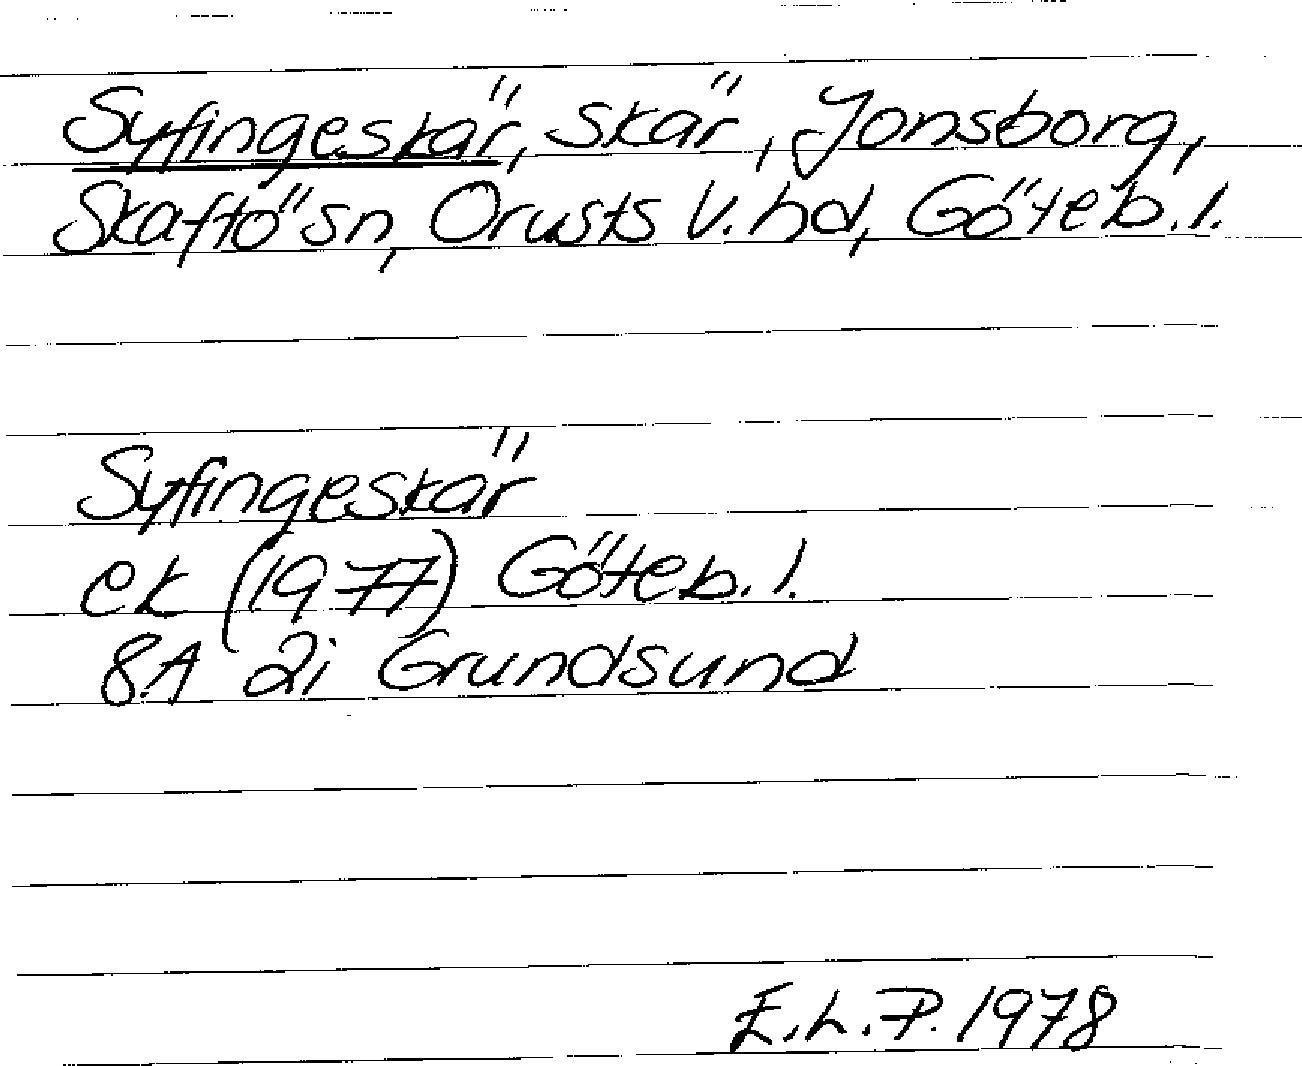 Syfingeskär, skär, Jonsborg,
Skaftö sn, Orusts V. hd, Göteb. l.
Syfingeskär
ek (1977) Göteb. l.
8A 2i Grundsund
E.L.P. 1978